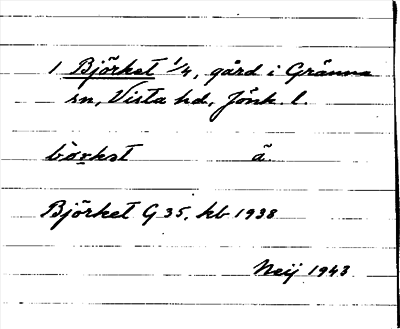 1 Björket 1/4, gård i Gränna
sn, Vista hd, Jönk. l.
ä
Björket G 35. kb 1938
Neij 1943